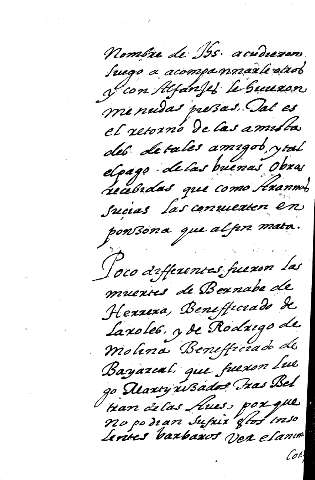 Nombre de Ihs. acudieron
luego a acompannarle otros
y con Alfanjes le hicieron
menudas piezas. Tal es
el retorno de las amista
des de tales amigos, y tal
el pago de las buenas obras
recebidas que como Arannas
sucias las convierten en
ponzona que al fin mata.
Poco differentes fueron las
muertes de Bernabe de
Herrera, Benefficiado de
Laroles, y de Rodrigo de
Molina Benefficiado de
Bayarcal, que fueron lue
go Martyrizados tras Bel
tran de las Aues, porque
no podian sufrir estos inso
lentes barbaros ver el anim